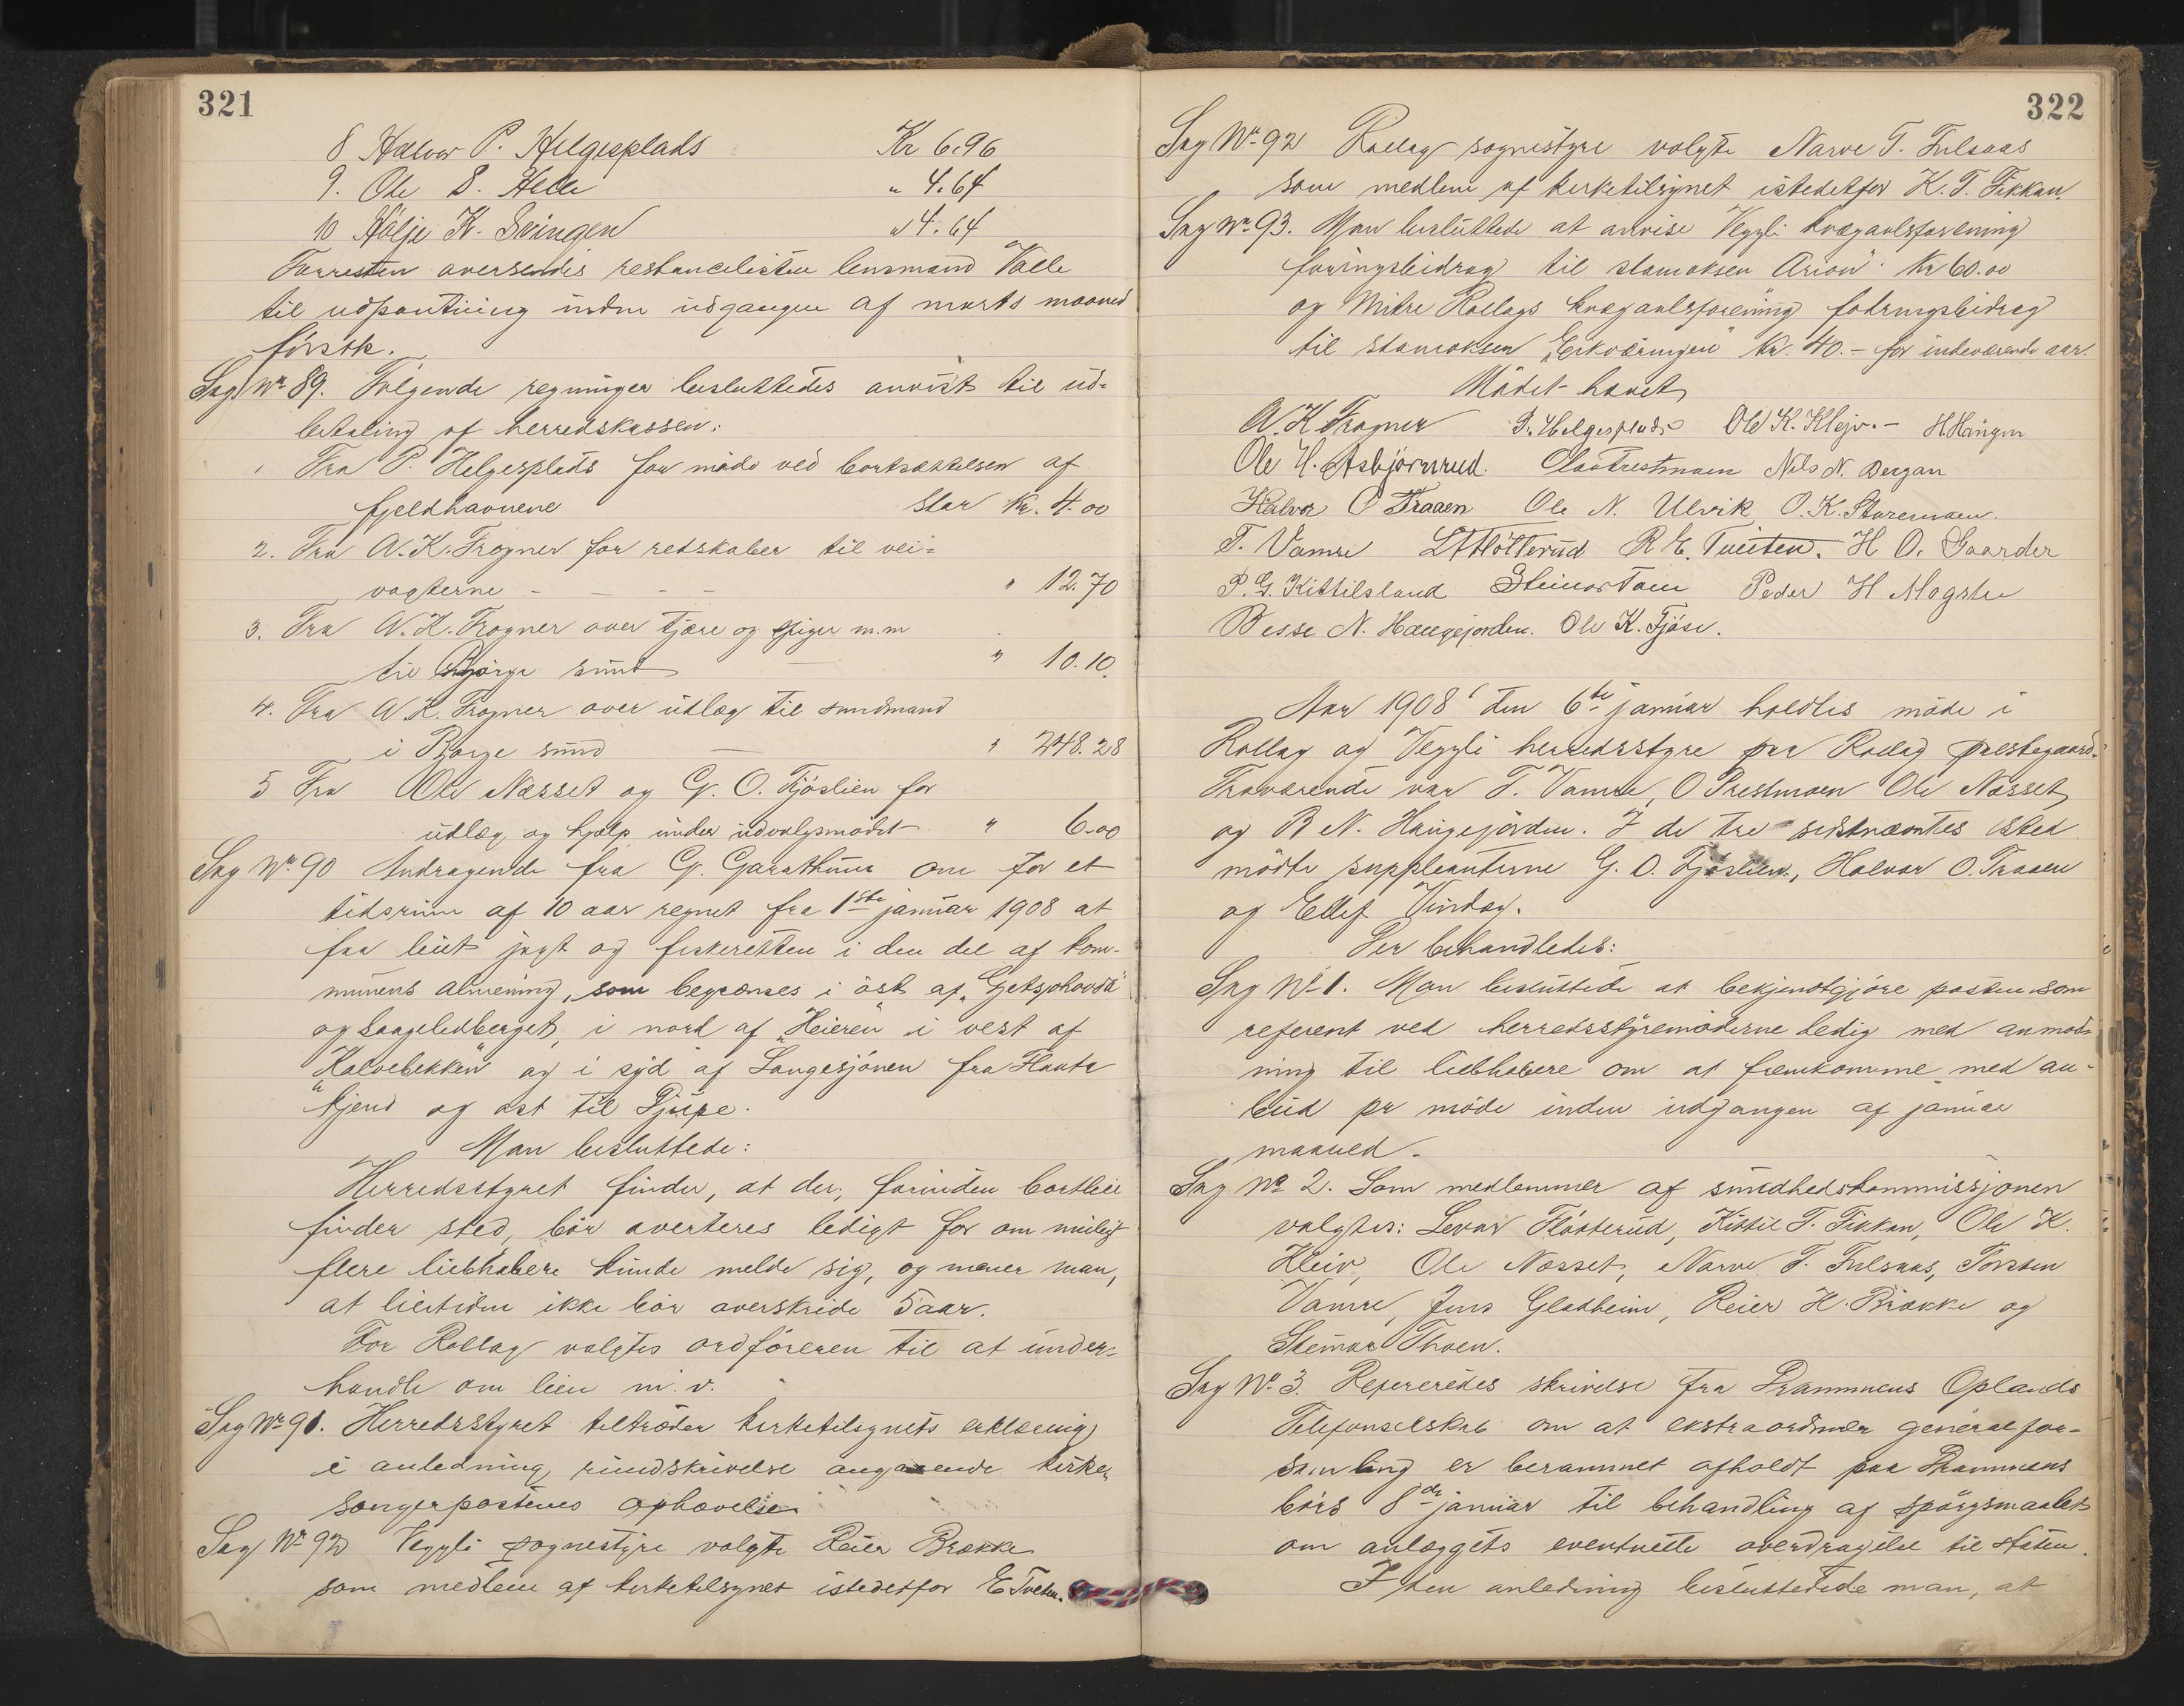 321
8 Halvor P. Helgesplads Kr 6.96
9. Ole S. Helle " 4.64
10 Hölje K. Svingen " 4.64
Forresten oversendes restancelisten lensmand Valle
til udpantning inden udgangen af marts maaned
förstk.
Sag No 89. Følgende regninger besluttedes anvist til ud-
betaling af herredskassen:
1 Fra P. Helgesplads for möde ved bortsættelsen af
fjeldhavnene stor Kr. 4.00
2. Fra A. K. Frogner for redskaber til vei-
vogterne - - - - " 12.70
3. Fra A. K. Frogner over tjære og spiger m.m
til Bjørge sund " 10.10.
4. Fra A. K. Frogner over utlæg til sundmand
i Børge sund — " 248.28
5 Fra Ole Næsset og G. O. Fjöslien for
utlæg og hjælp under udvalgsmödet " 6.00
Sag No 90 Andragende fra G. Garathun om for et
tidsrum af 10 aar regnet fra 1ste januar 1908 at
faa leiet jagt og fiskeretten i den del af kom-
munens almening, som begrænses i öst af "Getsjohovda"
og Saagelidberget, i nord af "Heieren" i vest af
"Kalvebekken" og i syd af Langesjönen fra Flaata
kjend og öst til Djupe.
Man besluttede:
Herredsstyret finder, at der, forinden bortleie
finder sted, bör averteres ledigt for om muligt
flere liebhabere kunde melde sig, og mener man,
at leietiden ikke bör overskride 5 aar.
For Rollag valgtes ordföreren til at under-
handle om leien m. v.
Sag No 91. Herredsstyret tiltræder kirketilsynets erklæring
i anledning rundskrivelse angaaende kirke-
sangerpostenes ophævelse
Sag No 92 Veggli sognestyre valgte Reier Brække
som medlem af kirketilsynet istedetfor E Tveten.
322
Sag No 92 Rollag sognestyre valgte Narve T. Fulsaas
som medlem af kirketilsynet istedetfor K. T. Fikkan.
Sag No 93. Man besluttede at anvise Veggli kvægavlsforening
foringsbidrag til stamoksen "Arion" Kr 60.00
og Mitre Rollags kvægavlsforening fodringsbidrag
til stamoksen "Eikværingen" Kr. 40.- for indeværende aar.
Mödet hævet
A. K. Frogner P. Helgesplads Ole K. Klejv.- H Haugen
Ole H. Asbjörnrud. Ola Prestmoen Nils N. Bergan
Halvor O Traaen Ole N. Ulvik O. K. Staremoen.
T. Vamre L T Flötterud R E. Tveiten. H O. Gaarder
P. G. Kittilsland Steinar Toen Peder H Mogstu
Besse N. Haugejorden. Ole K. Fjöse.
Aar 1908 den 6te januar holdtes möde i
Rollag og Veggli herredsstyre paa Rollag prestegaard.
Fraværende var T. Vamre, O Prestmoen Ole Næsset
og B N. Haugejorden. I de tre sidstnævntes sted
mödte suppleanterne G. O. Fjöslien, Halvor O. Traaen
og Ellef Vindeg.
Der behandledes:
Sag No 1. Man besluttede at bekjendtgjöre posten som
referent ved herredsstyremöderne ledig med anmod-
ning til liebhabere om at fremkomme med an-
bud pr möde inden udgangen af januar
maaned.
Sag No 2. Som medlemmer af sundhedskommissjonen
valgtes: Levar Flötterud, Kittil T. Fikkan, Ole K.
Kleiv, Ole Næsset, Narve T. Fulsaas, Torsten
Vamre, Jens Gladheim, Reier H. Brække og
Steinar Thoen.
Sag No 3. Refereredes skrivelse fra Drammens Oplands
Telefonselskab om at ekstraordinær generalfor-
samling er berammet afholdt paa Drammens
börs 8de januar til behandling af spörgsmaalet
om anlæggets eventuelle overdragelse til staten.
I den anledning besluttedede man, at